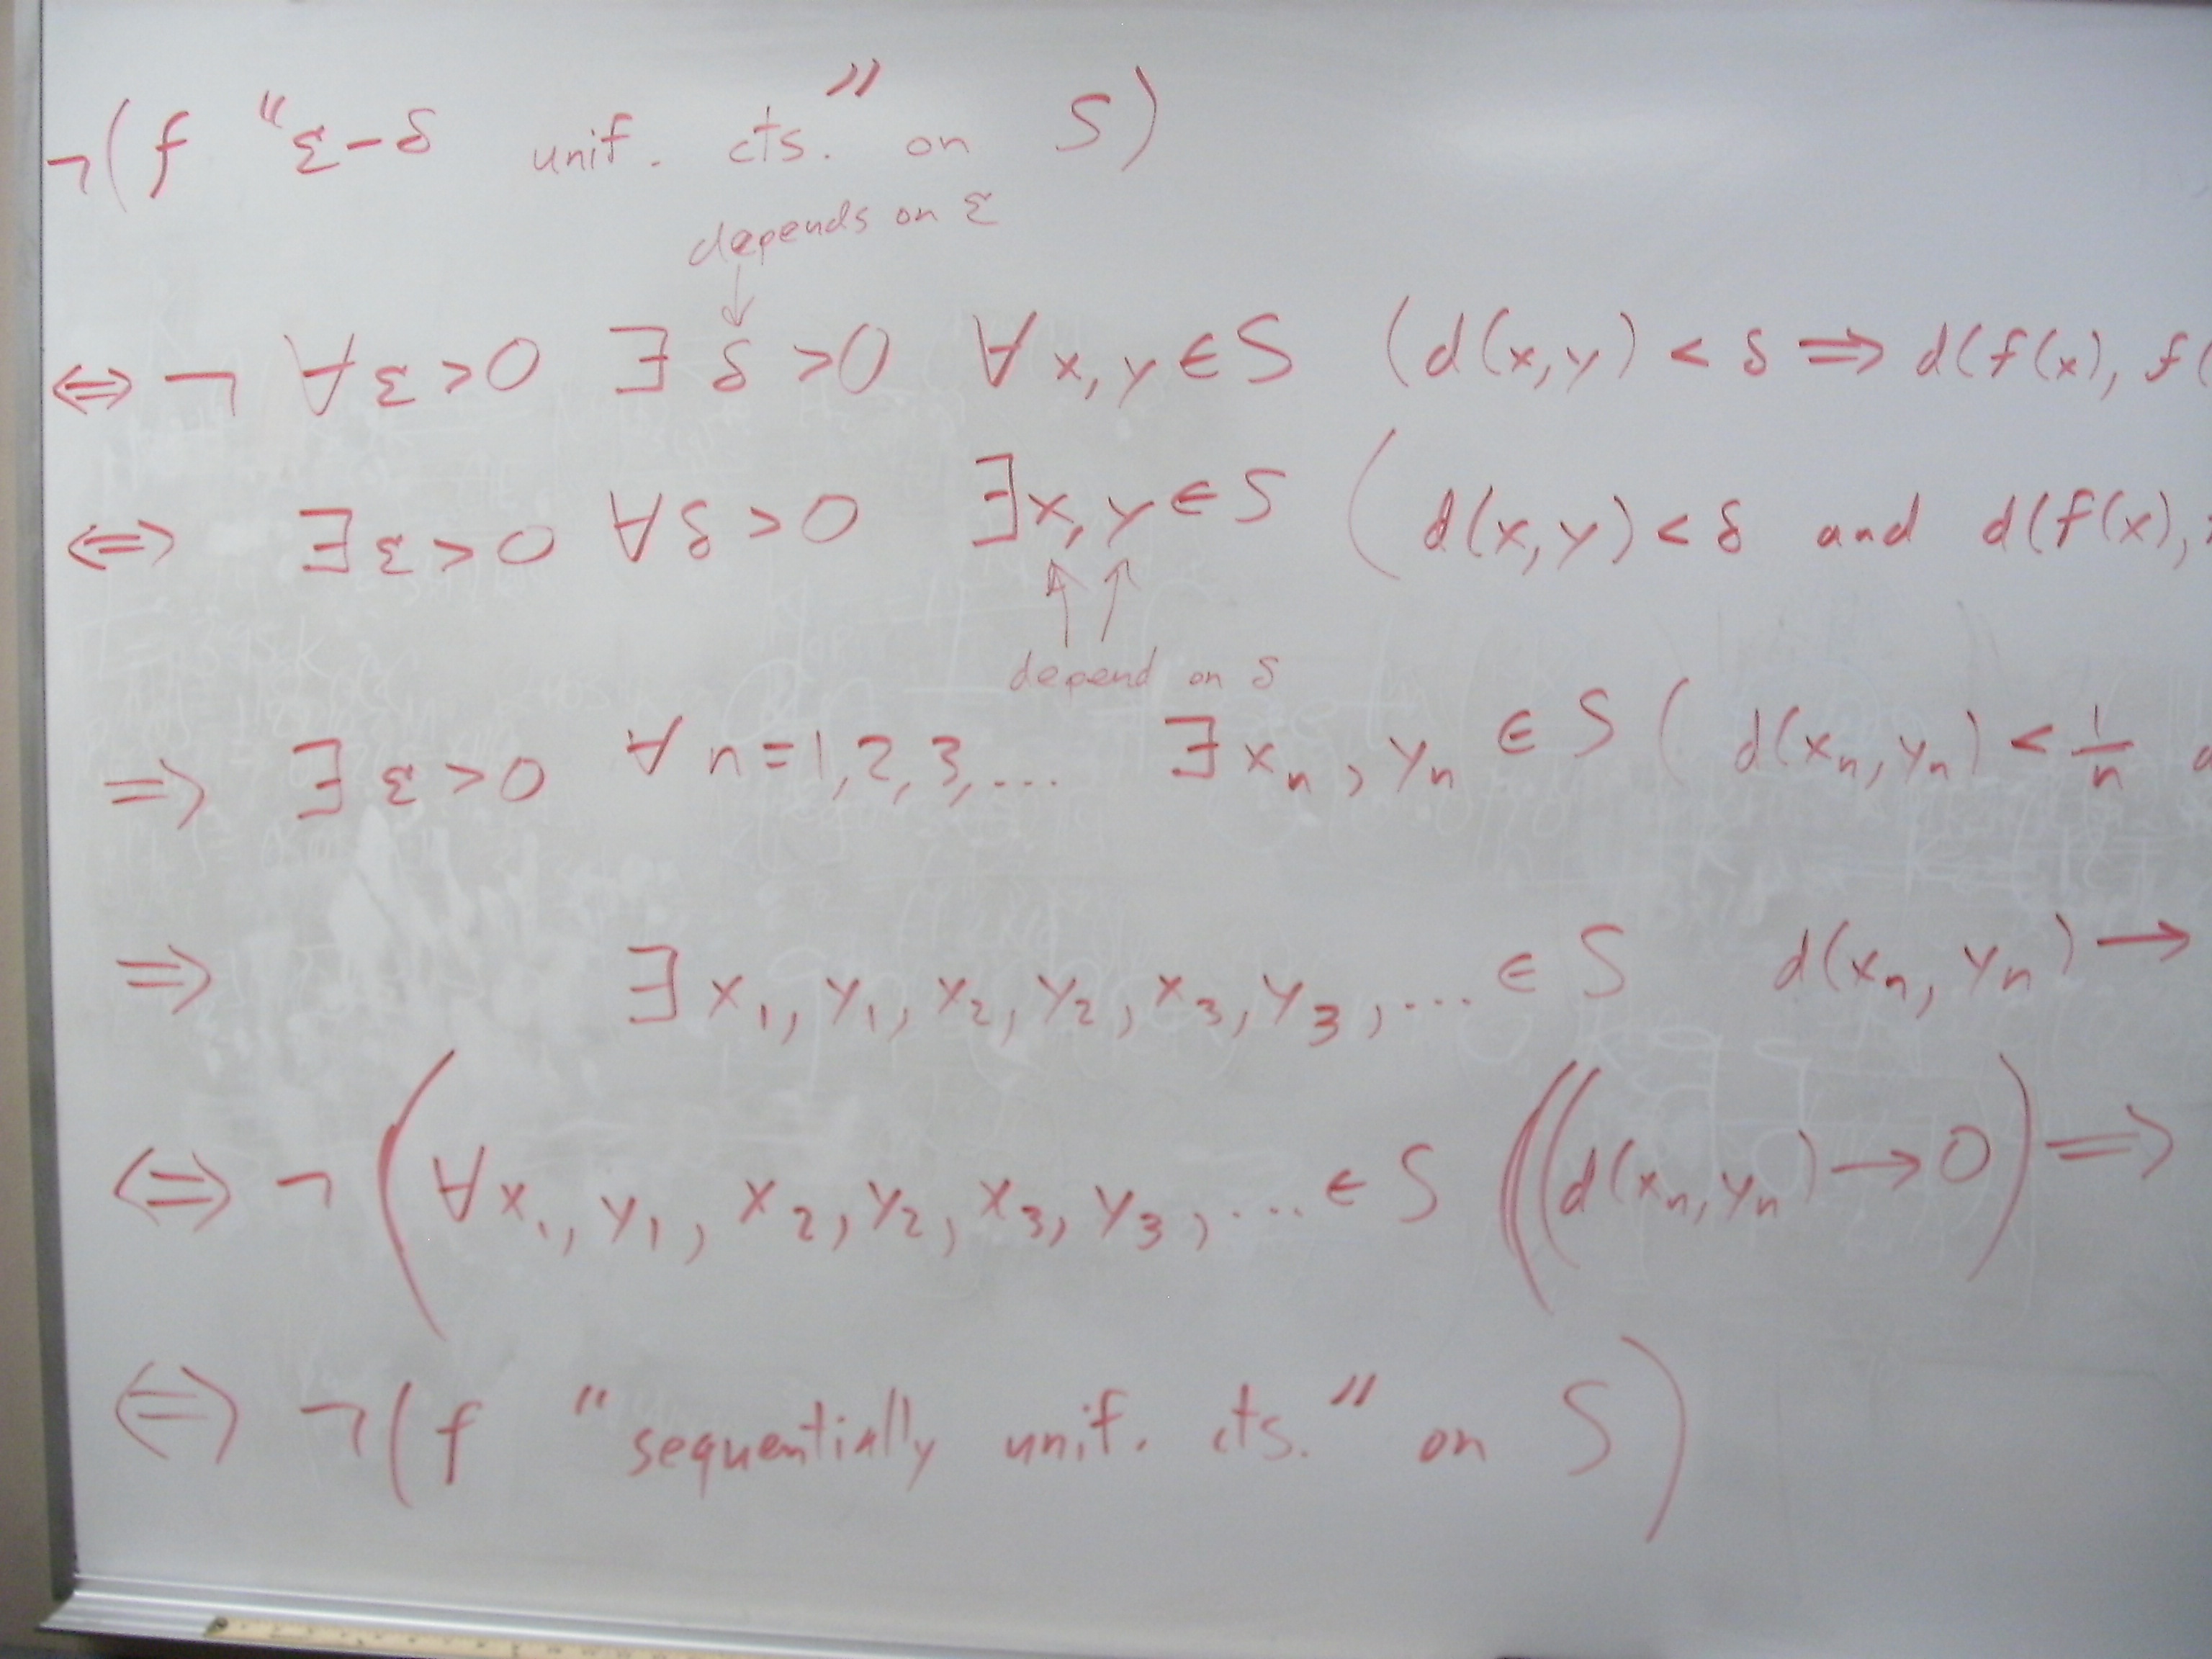 ¬(f "ε-δ unif. cts." on S)
depends on ε
↓
⇔ ¬ ∀ε>0 ∃δ>0 ∀x,y∈S (d(x,y)<δ ⇒ d(f(x), f(
⇔ ∃ε>0 ∀δ>0 ∃x,y∈S (d(x,y)<δ and d(f(x),
↑ ↑
depend on δ
⇒ ∃ε>0 ∀n=1,2,3,... ∃xₙ,yₙ∈S (d(xₙ,yₙ)<1/n
⇒ ∃x₁,y₁,x₂,y₂,x₃,y₃,...∈S d(xₙ,yₙ)→
⇔ ¬(∀x₁,y₁,x₂,y₂,x₃,y₃,....∈S ((d(xₙ,yₙ)→0)⇒
⇔ ¬(f "sequentially unif. cts." on S)